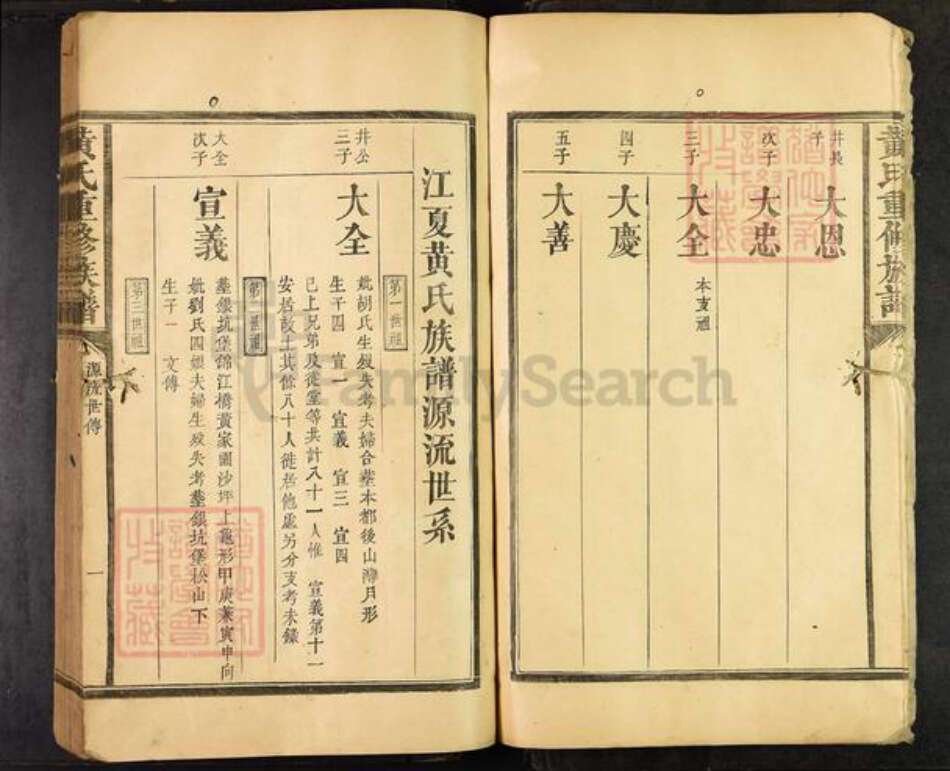 黃氏重修族譜
井長子
大恩
次子
大忠
三子
大全
本支祖
四子
大慶
五子
大善
江夏黄氏族譜源流世系
第一世祖
井公三子
大全
妣胡氏生殁失考夫婦合塟本都後山灣月形
生子四 宣一 宣義 宣三 宣四
已上兄弟及從堂等共計八十一人惟 宣義第十一
安居故土其餘八十人徙居他處另分支考未錄
第二世祖
大全次子
宣義
塟銀坑堡錦江橋黄家園沙坪上龜形甲庚兼寅申向
妣劉氏四娘夫婦生殁失考塟銀坑堡松山下
生子一 文傳
第三世祖
黃氏重修族譜
源流世傳
一
FamilySearch